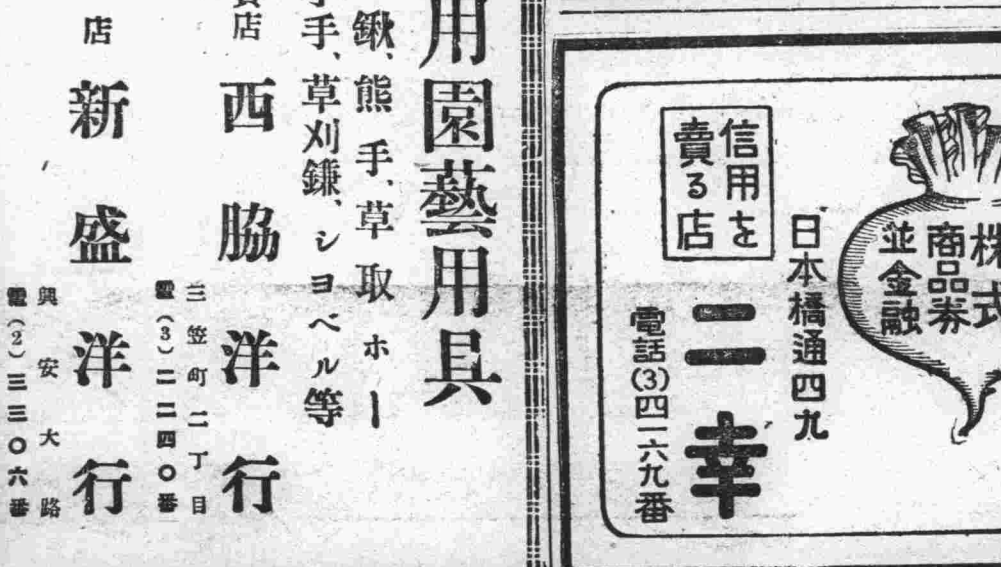 株式
商品券
並金融
日本橋通四九
信用を
賣る店
二幸
電話(3)四一六九番
用園藝用具
鍬、熊手、草取ホー
手、草刈鎌、シヨベル等
店 西脇洋行
三笠町二丁目
電(3)二二四〇番
店 新盛洋行
興安大路
電(2)三三〇六番